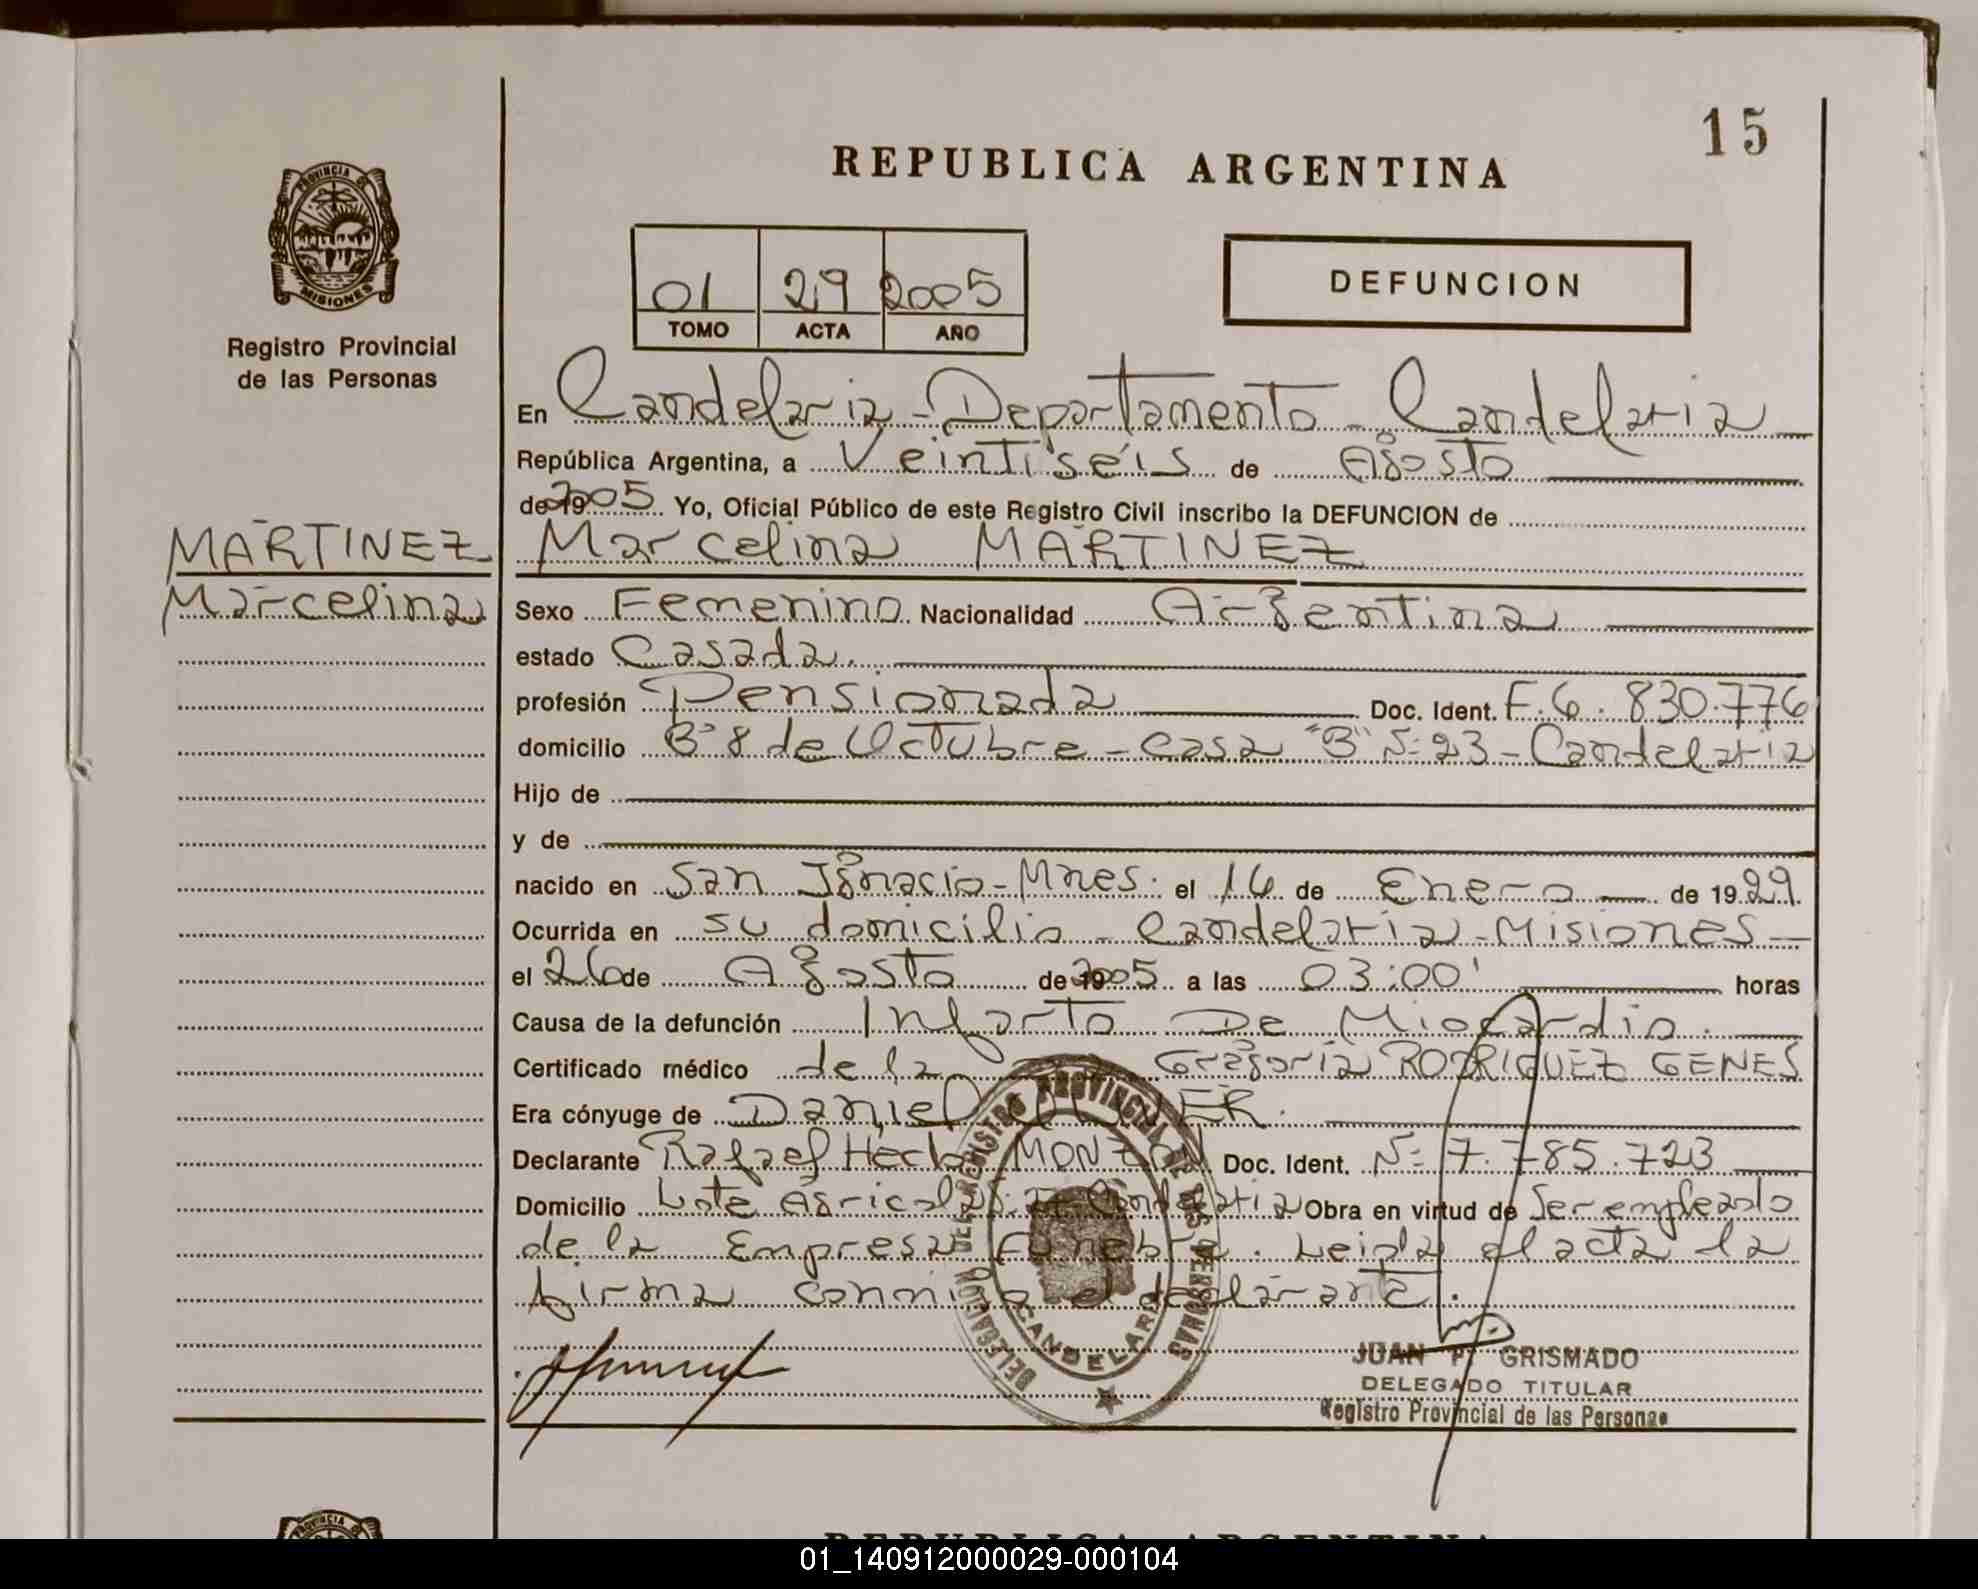 15
REPUBLICA ARGENTINA
PROVINCIA DE
MISIONES
Registro Provincial
de las Personas
01 29 2005
TOMO ACTA AÑO
DEFUNCION
En Candelaria - Departamento - Candelaria
República Argentina, a Veintiséis de Agosto
de 2005 Yo, Oficial Público de este Registro Civil inscribo la DEFUNCION de
MARTINEZ
Marcelina
Marcelina MARTINEZ
Sexo Femenino Nacionalidad Argentina
estado Casada.
profesión Pensionada Doc. Ident. F.6.830.776
domicilio B° 8 de Octubre - Casa "B" Nº 23 - Candelaria
Hijo de
y de
nacido en San Ignacio - Mnes. el 16 de Enero de 1929.
Ocurrida en su domicilio - Candelaria - Misiones -
el 26 de Agosto de 2005 a las 03:00' horas
Causa de la defunción Infarto De Miocardio.
Certificado médico de la Gregoria RODRIGUEZ GENES
Era cónyuge de Daniel
Declarante Rafael Hector MONZON Doc. Ident. Nº 7.785.723
Domicilio Lote Agricola Candelaria Obra en virtud de Ser empleado
de la Empresa Funebre. Leida el acta la
firma conmigo el declarante.
DELEGACION DEL REGISTRO PROVINCIAL DE LAS PERSONAS
CANDELARIA
JUAN P. GRISMADO
DELEGADO TITULAR
Registro Provincial de las Personas
PROVINCIA
REPUBLICA ARGENTINA
01_140912000029-000104